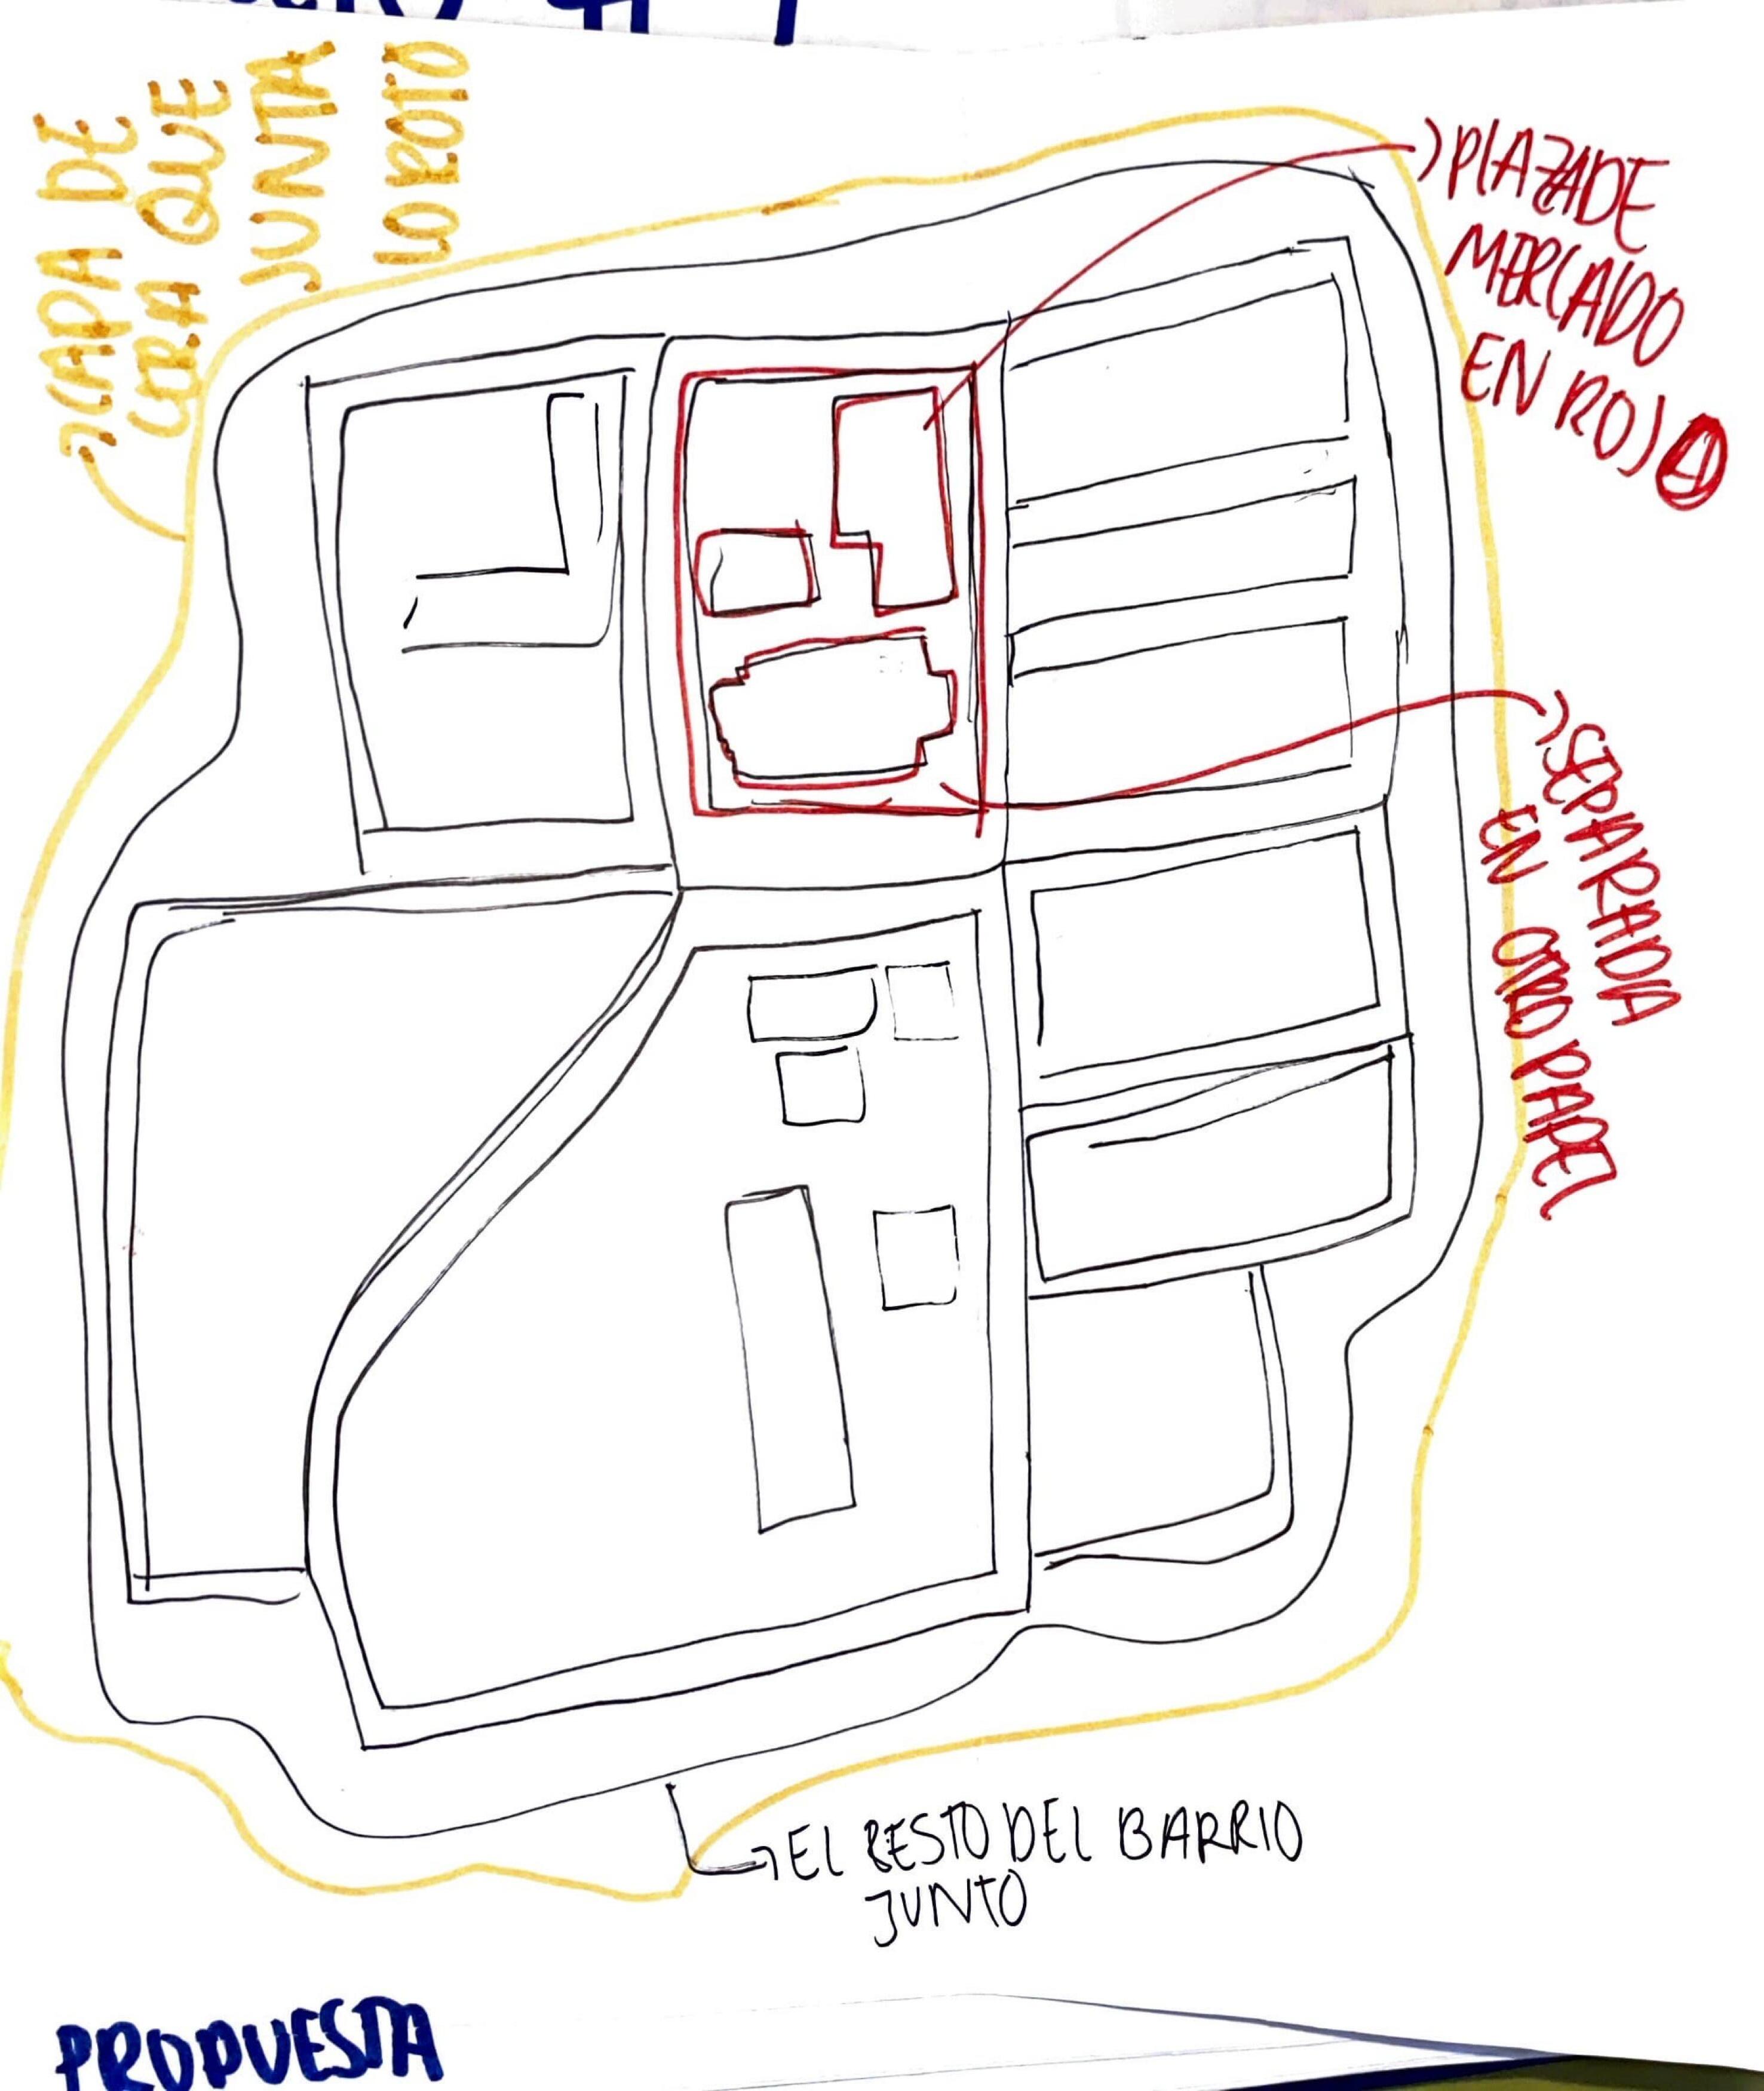 CAPA DE
CERA QUE
JUNTA
LO ROTO
PLAZA DE
MERCADO
EN ROJO
SEPARADA
EN OTRO PAPEL
EL RESTO DEL BARRIO
JUNTO
PROPUESTA